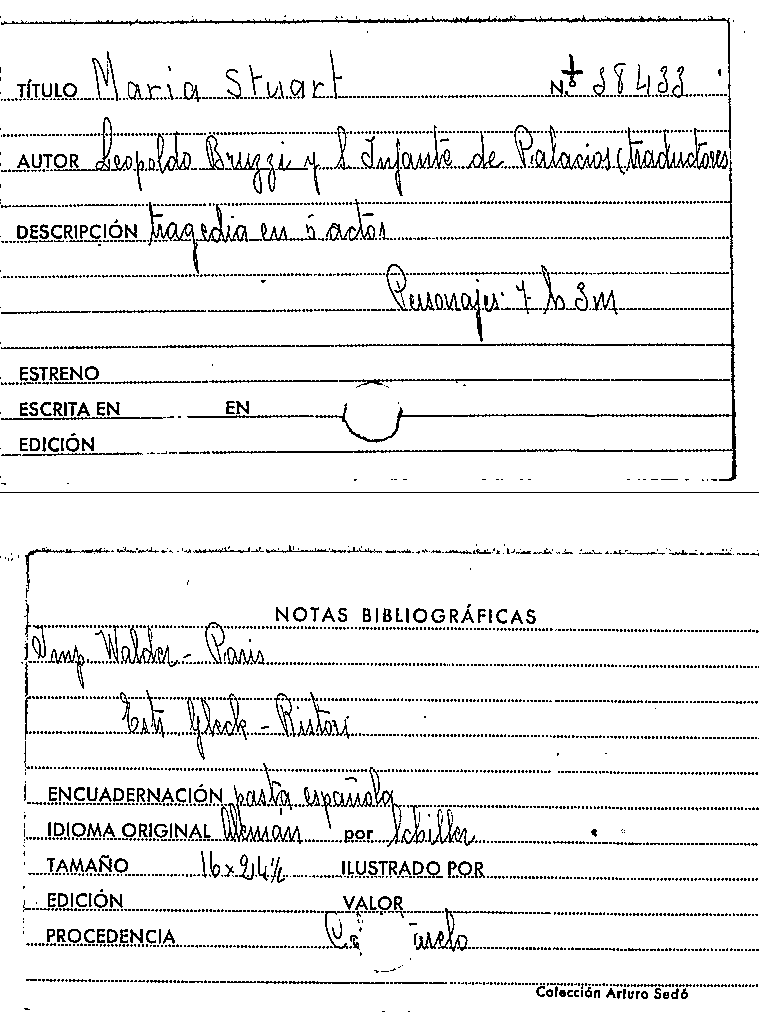 TÍTULO Maria Stuart N.º 38433
AUTOR Leopoldo Bruzzi y L Infante de Palacios (traductores
DESCRIPCIÓN tragedia en 5 actos
Personajes: 7 h 3 m
ESTRENO
ESCRITA EN EN
EDICIÓN
NOTAS BIBLIOGRÁFICAS
Imp. Walder - Paris
Estr Gleck - Ristori
ENCUADERNACIÓN pasta española
IDIOMA ORIGINAL Alemán por Schiller
TAMAÑO 16 x 24½ ILUSTRADO POR
EDICIÓN VALOR
PROCEDENCIA
Colección Arturo Sedó